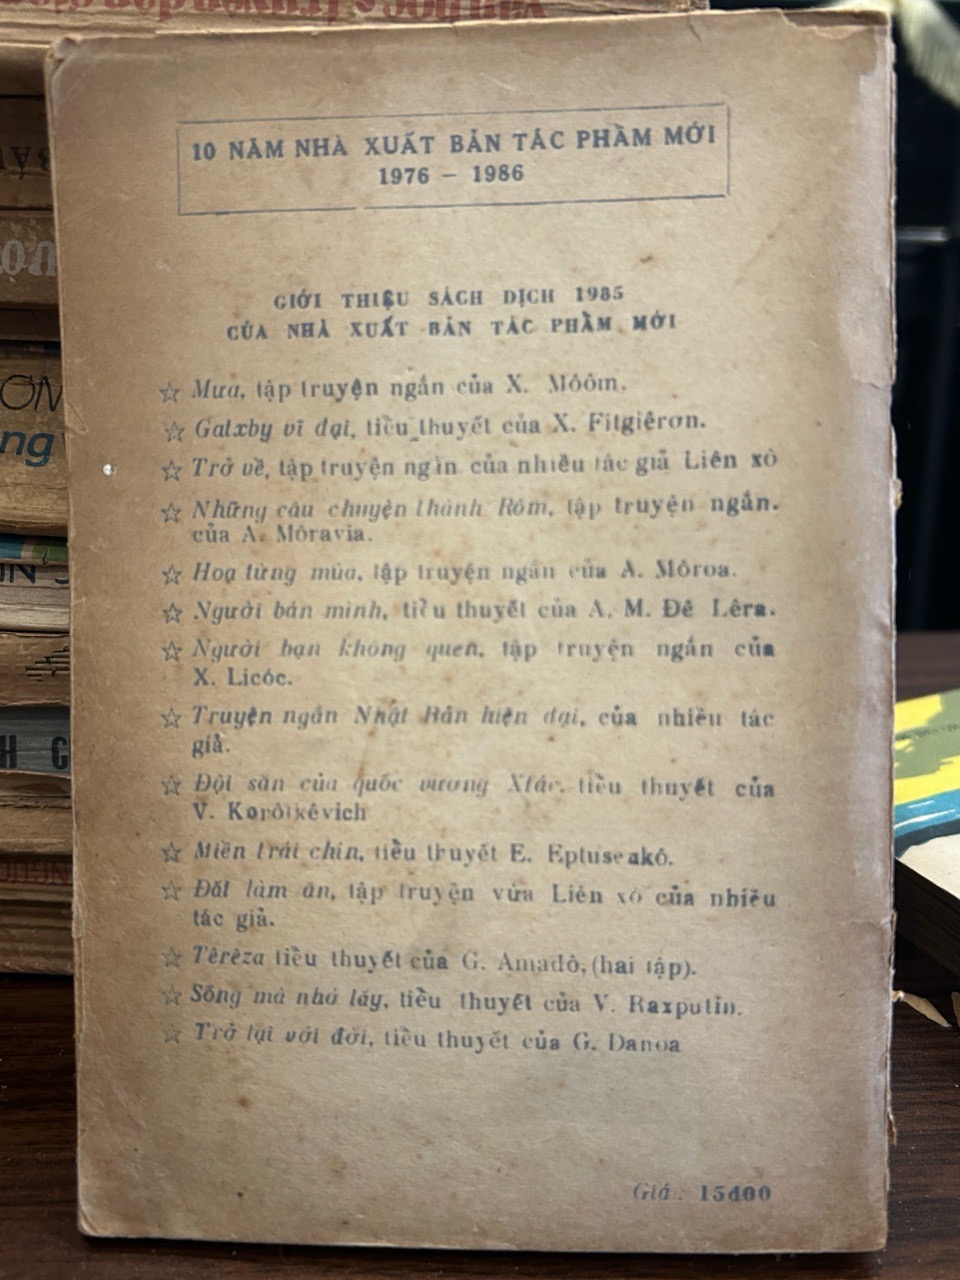 10 NĂM NHÀ XUẤT BẢN TÁC PHẨM MỚI
1976 - 1986
GIỚI THIỆU SÁCH DỊCH 1985
CỦA NHÀ XUẤT BẢN TÁC PHẨM MỚI
☆ Mưa, tập truyện ngắn của X. Môôm.
☆ Galxby vĩ đại, tiểu thuyết của X. Fitgiêrơn.
☆ Trở về, tập truyện ngắn của nhiều tác giả Liên xô
☆ Những câu chuyện thành Rôm, tập truyện ngắn.
của A. Môravia.
☆ Hoa từng mùa, tập truyện ngắn của A. Môroa.
☆ Người bán mình, tiểu thuyết của A. M. Đê Lêra.
☆ Người bạn không quen, tập truyện ngắn của
X. Licóc.
☆ Truyện ngắn Nhật Bản hiện đại, của nhiều tác
giả.
☆ Đội săn của quốc vương Xtác, tiểu thuyết của
V. Korôtkêvich
☆ Miền trái chín, tiểu thuyết E. Eptuseakô.
☆ Đất làm ăn, tập truyện vừa Liên xô của nhiều
tác giả.
☆ Têrêza tiểu thuyết của G. Amađô, (hai tập).
☆ Sống mà nhớ lấy, tiểu thuyết của V. Raxputin.
☆ Trở lại với đời, tiểu thuyết của G. Danoa
Giá : 15đ00